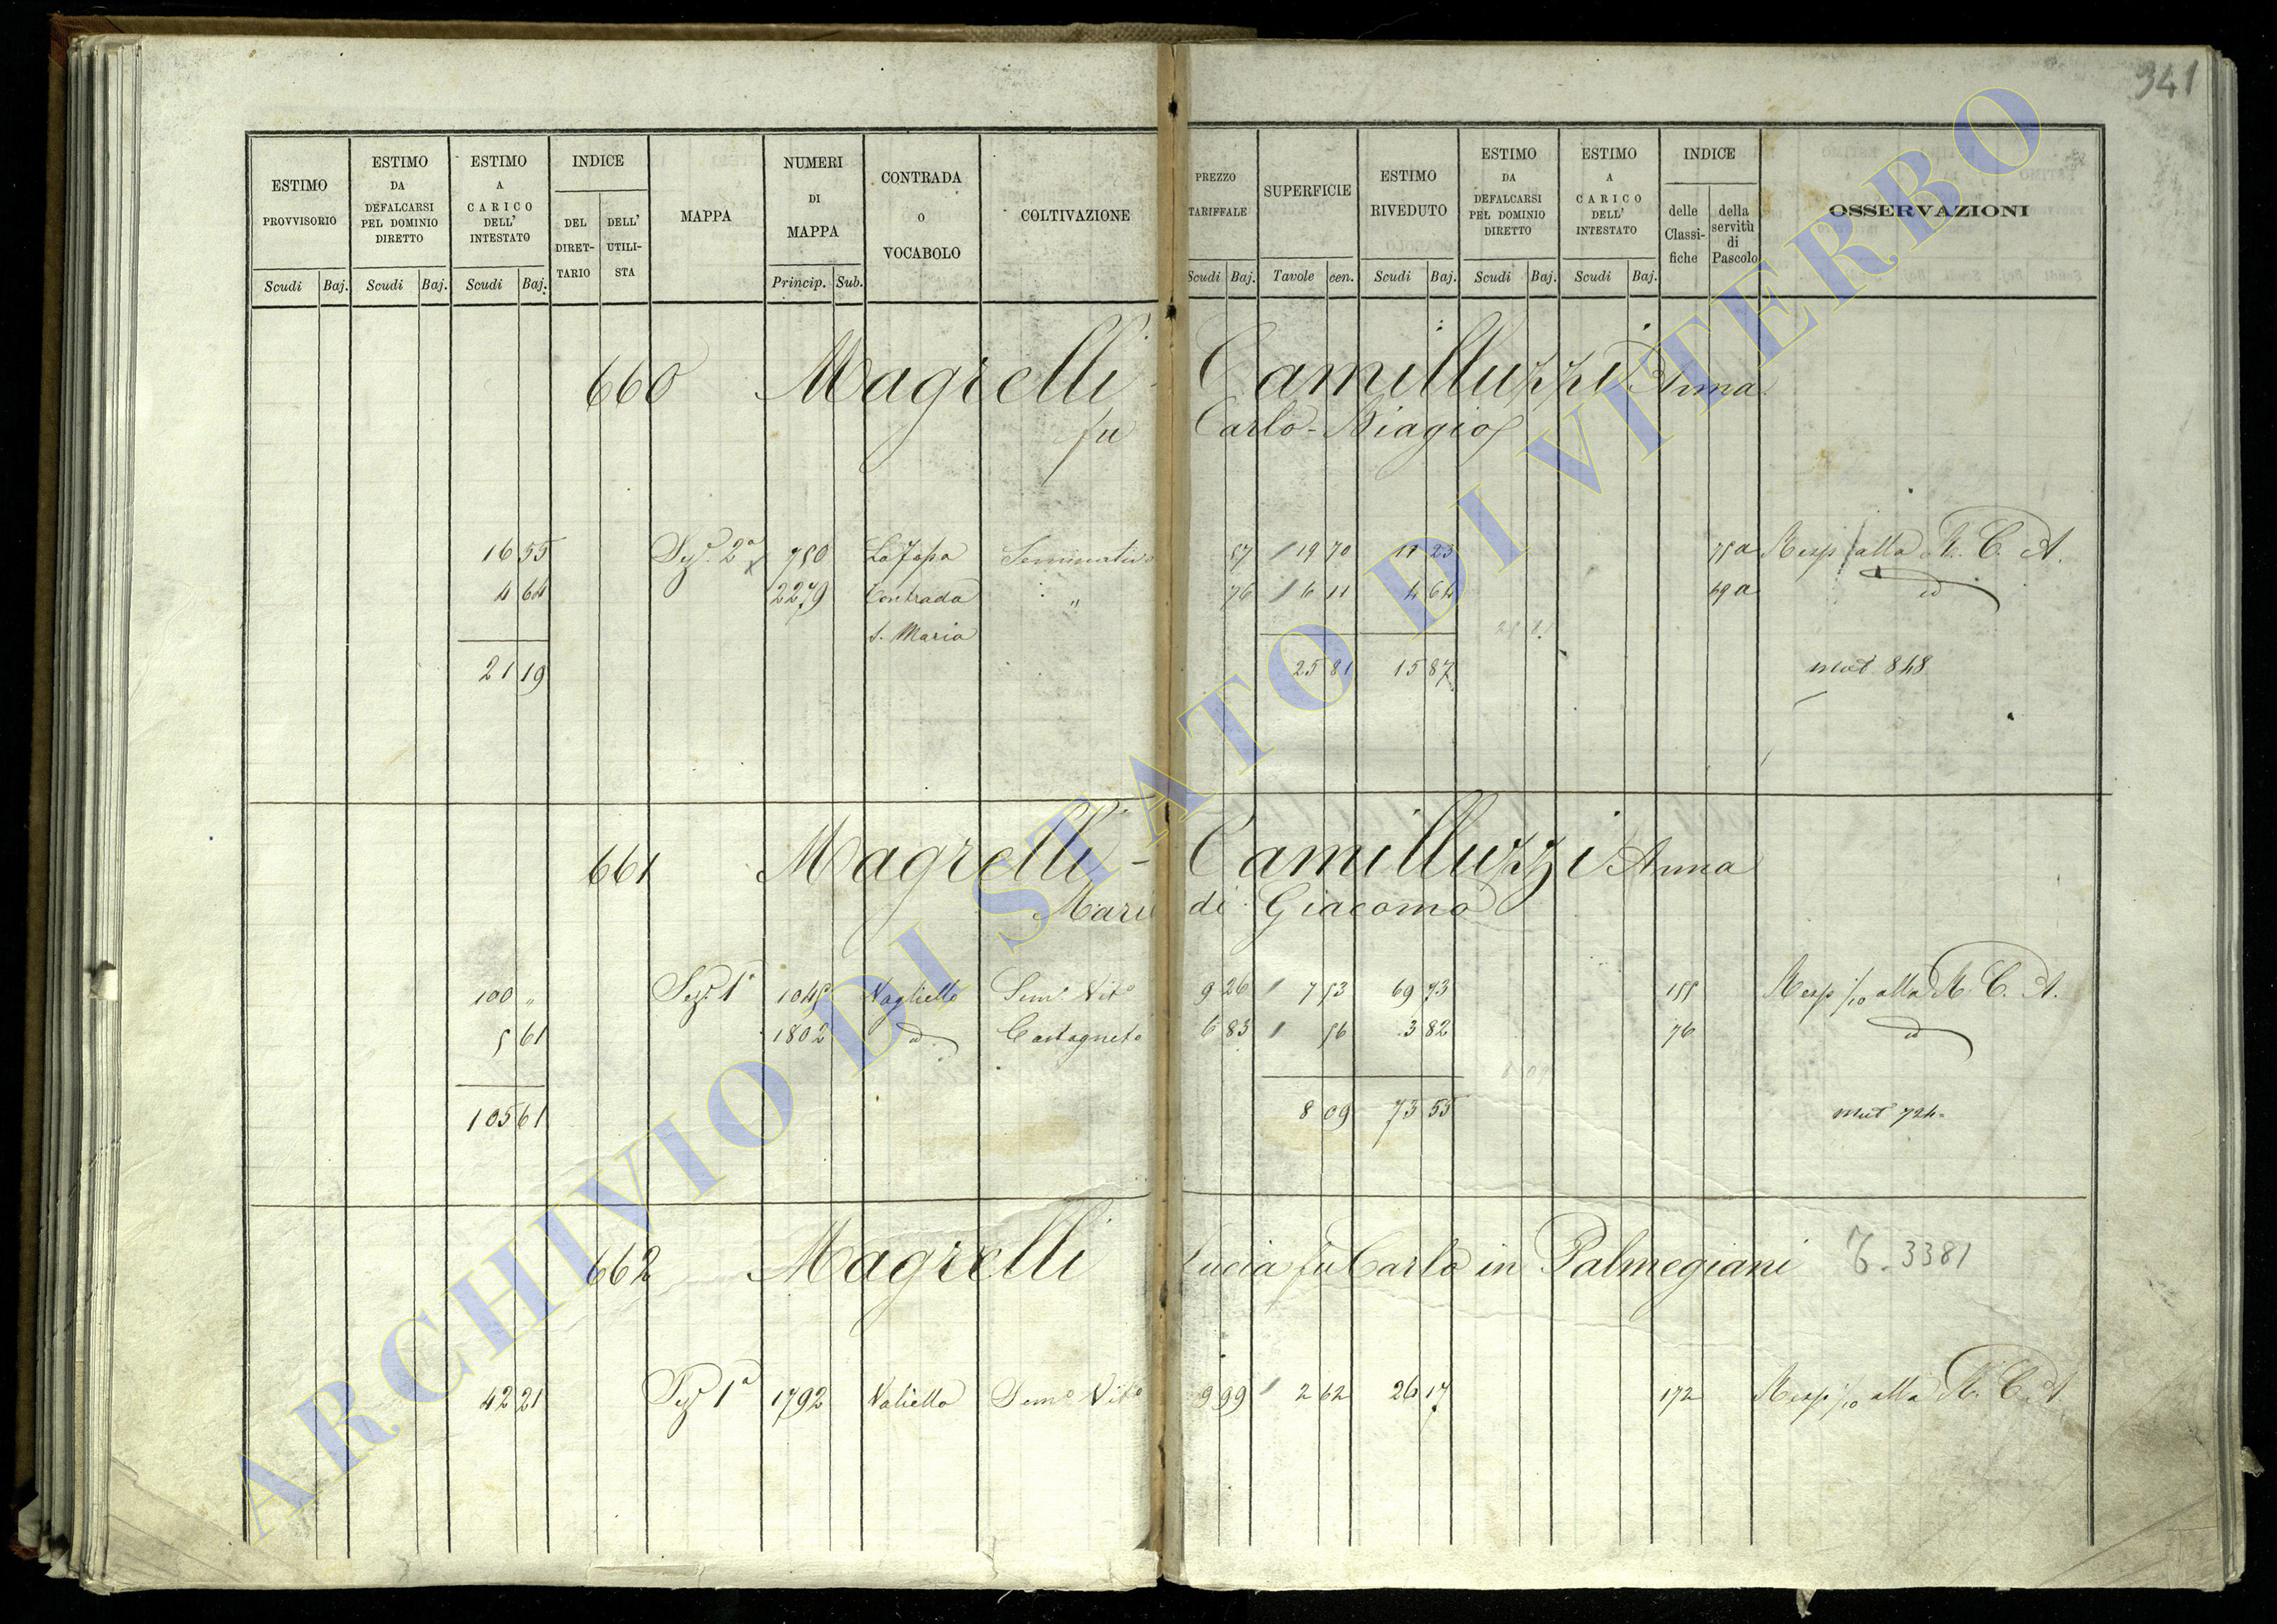 341
ESTIMO PROVVISORIO | ESTIMO DA DEFALCARSI PEL DOMINIO DIRETTO | ESTIMO A CARICO DELL' INTESTATO | INDICE DEL DIRET-TARIO | DELL' UTILI-STA | MAPPA | NUMERI DI MAPPA | CONTRADA O VOCABOLO | COLTIVAZIONE | PREZZO TARIFFALE | SUPERFICIE | ESTIMO RIVEDUTO | ESTIMO DA DEFALCARSI PEL DOMINIO DIRETTO | ESTIMO A CARICO DELL' INTESTATO | INDICE delle Classi-fiche | della servitù di Pascolo | OSSERVAZIONI
Scudi Baj. Scudi Baj. Scudi Baj. Princip. Sub. Scudi Baj. Tavole cen. Scudi Baj. Scudi Baj. Scudi Baj.
660 Magrelli - Camilluzzi Anna
fu Carlo-Biagio
16 55 Sez. 2a 750 Seminativo 57 19 70 11 23 75a alla R. C. A.
4 64 2279 Contrada " 76 6 11 4 64 49a id
S. Maria
21 19 25 81 15 87 mut 848
661 Magrelli - Camilluzzi Anna
di Giacomo
100 " Sez. 1a 1045 Vagliello Sem.o Vit.o 9 26 7 53 69 73 155 Resp 1/10 alla R. C. A.
5 61 1802 id Castagneto 6 83 56 3 82 76 id
105 61 8 09 73 55 mut 724
662 Magrelli Lucia fu Carlo in Palmegiani 3381
42 21 Sez. 1a 1792 Valiello Sem.o Vit.o 9 99 2 62 26 17 172 Resp 1/10 alla R. C. A.
ARCHIVIO DI STATO DI VITERBO